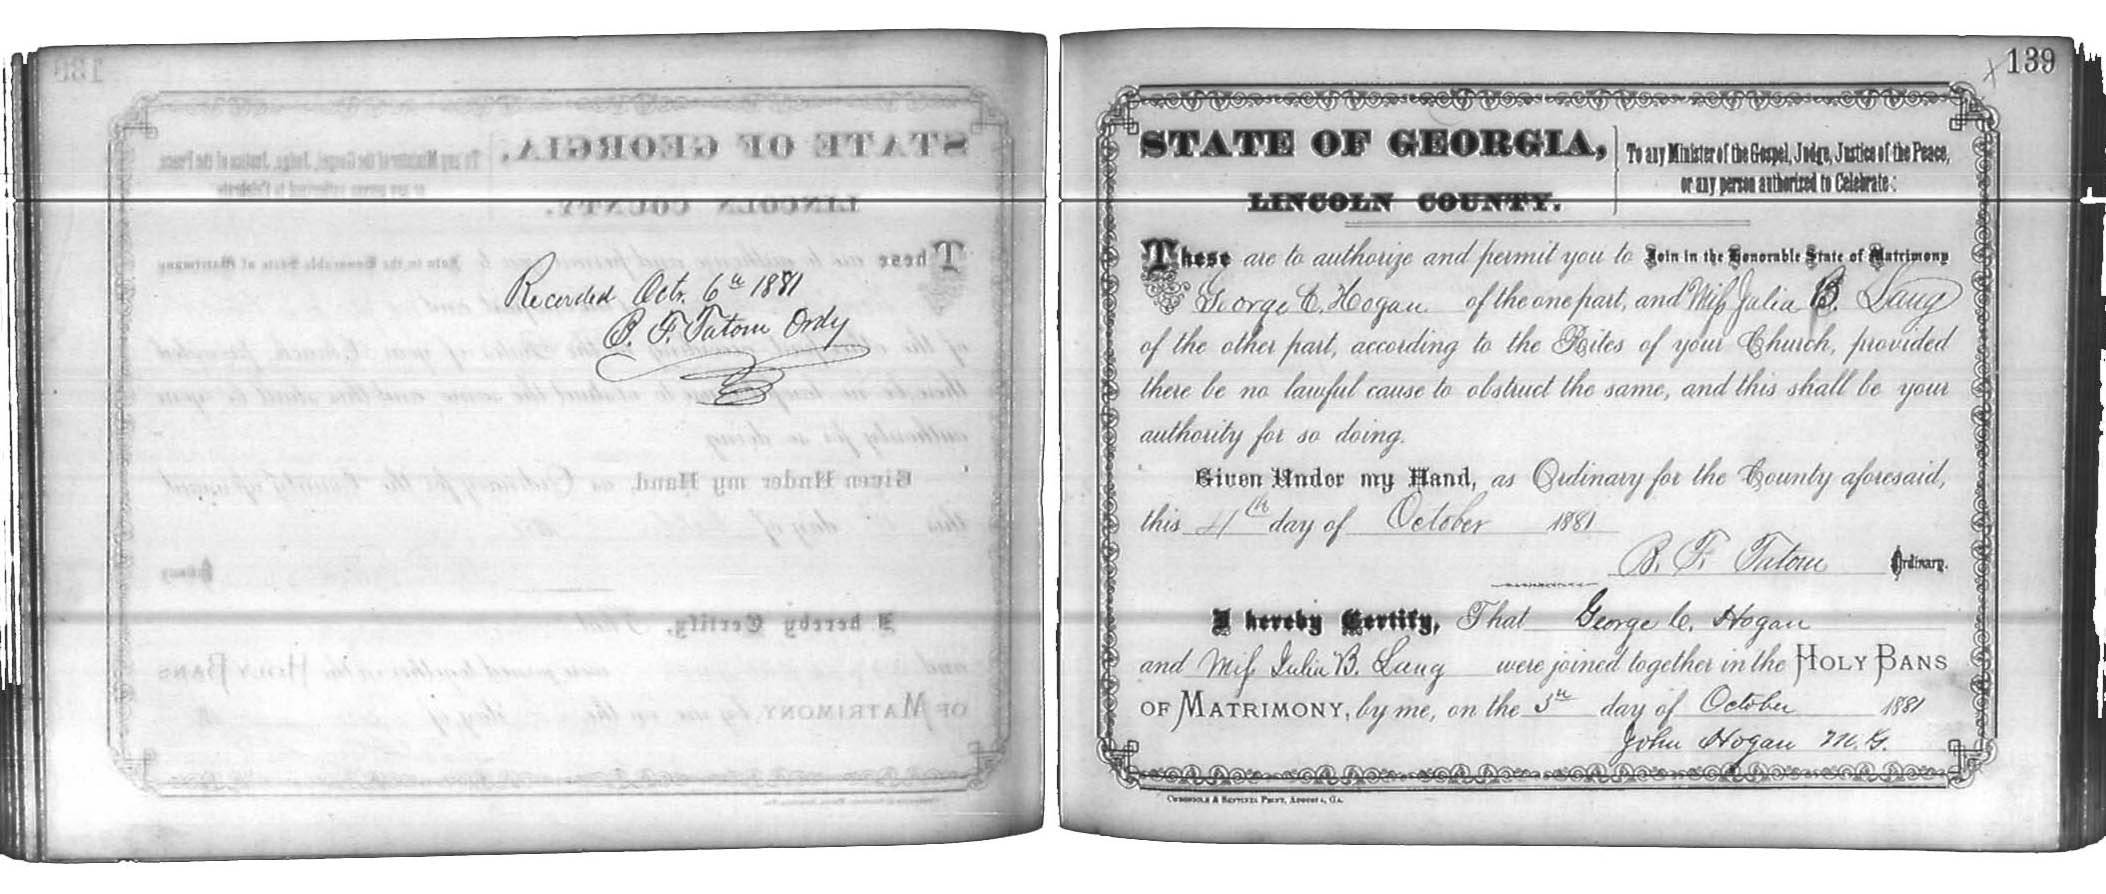 Recorded Octr. 6th 1881
B. F. Tatom Ordy
139
STATE OF GEORGIA,
LINCOLN COUNTY.
To any Minister of the Gospel, Judge, Justice of the Peace,
or any person authorized to Celebrate:
These are to authorize and permit you to Join in the Honorable State of Matrimony
George C. Hogan of the one part, and Miss Julia B. Lang
of the other part, according to the Rites of your Church, provided
there be no lawful cause to obstruct the same, and this shall be your
authority for so doing.
Given Under my Hand, as Ordinary for the County aforesaid,
this 4th day of October 1881
B. F. Tatom Ordinary.
I hereby Certify, That George C. Hogan
and Miss Julia B. Lang were joined together in the HOLY BANS
OF MATRIMONY, by me, on the 5th day of October 1881
John Hogan M.G.
CHRONICLE & SENTINEL PRINT, AUGUSTA, GA.